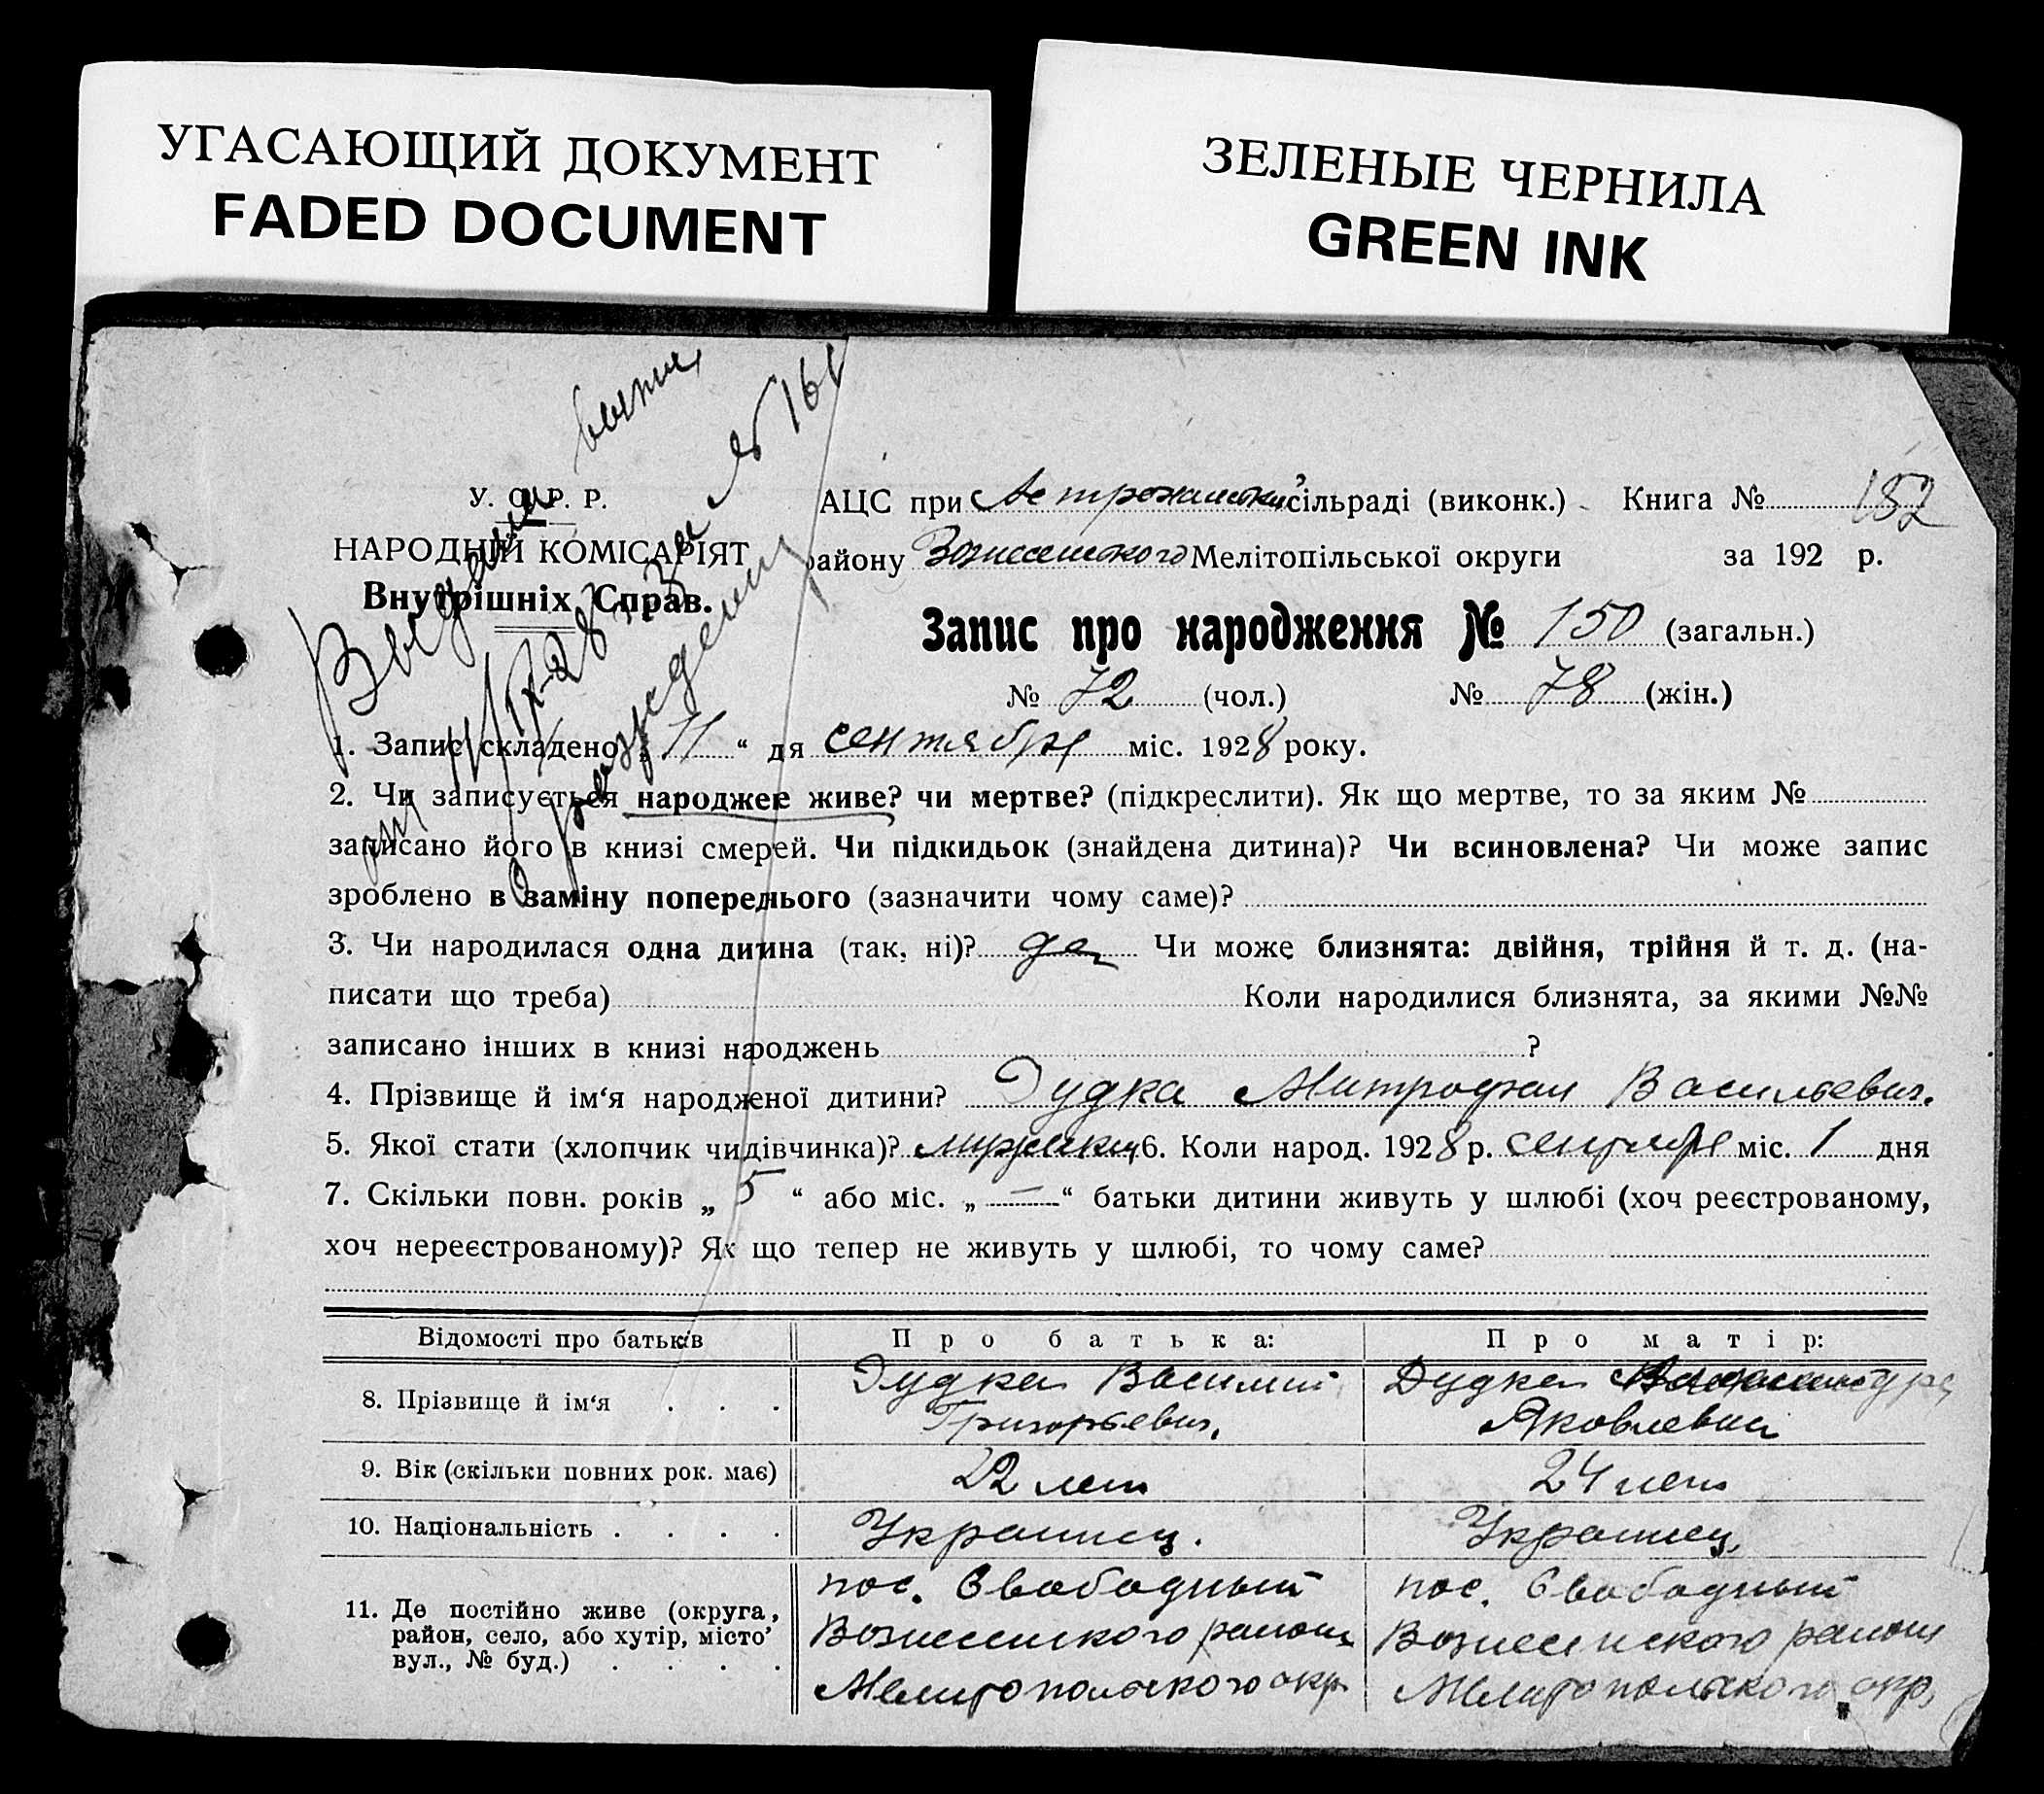 УГАСАЮЩИЙ ДОКУМЕНТ
FADED DOCUMENT
ЗЕЛЕНЫЕ ЧЕРНИЛА
GREEN INK
У. С. Р. Р.
НАРОДНІЙ КОМІСАРІЯТ
Внутрішніх Справ.
Выдана выпись
о рождении
за № 161
АЦС при сільраді (виконк.) Книга № 152
району Вознесенского Мелітопільської округи за 192 р.
Запис про народження № 150 (загальн.)
№ 72 (чол.) № 78 (жін.)
1. Запис складено „ 11 “ дя сентября міс. 1928 року.
2. Чи записується народжее живе? чи мертве? (підкреслити). Як що мертве, то за яким №
записано його в книзі смерей. Чи підкидьок (знайдена дитина)? Чи всиновлена? Чи може запис
зроблено в заміну попереднього (зазначити чому саме)?
3. Чи народилася одна дитина (так, ні)? да Чи може близнята: двійня, трійня й т. д. (на-
писати що треба) Коли народилися близнята, за якими №№
записано інших в книзі народжень ?
4. Прізвище й ім‘я народженої дитини? Дудка Митрофан Васильевич.
5. Якої стати (хлопчик чи дівчинка)? 6. Коли народ. 1928 р. сентября міс. 1 дня
7. Скільки повн. років „ 5 “ або міс. „ — “ батьки дитини живуть у шлюбі (хоч реєстрованому,
хоч нереєстрованому)? Як що тепер не живуть у шлюбі, то чому саме?
Відомості про батьків Про батька: Про матір:
8. Прізвище й ім‘я . . . Дудка Василий Григорьевич. Дудка Яковлевна
9. Вік (скільки повних рок. має) 22 лет 24 лет
10. Національність . . . . Украинец. Украинец,
11. Де постійно живе (округа, район, село, або хутір, місто’ вул., № буд.) . . . .
пос. Свободный пос. Свободный
Вознесенского района Вознесенского района
Мелитопольского окр. Мелитопольского окр,